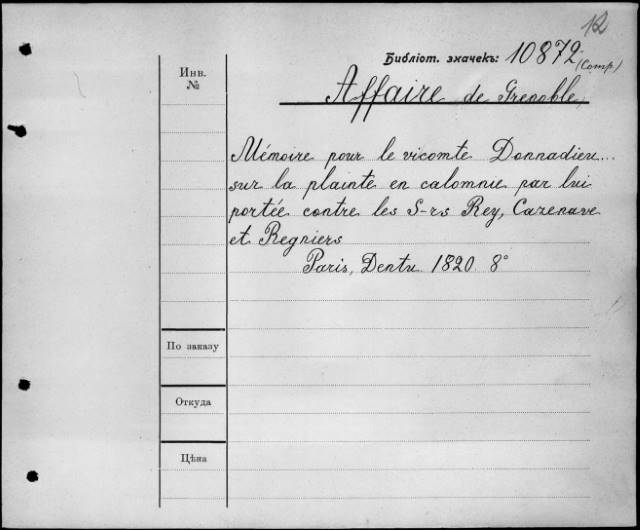 12
Библіот. значекъ: 10872 (Comp.)
Инв.
№
Affaire de Grenoble,
Mémoire pour le vicomte Donnadieu...
sur la plainte en calomnie par lui
portée contre les S-rs Rey, Cazenave
et Regniers
Paris, Dentu 1820 8°
По заказу
Откуда
Цѣна